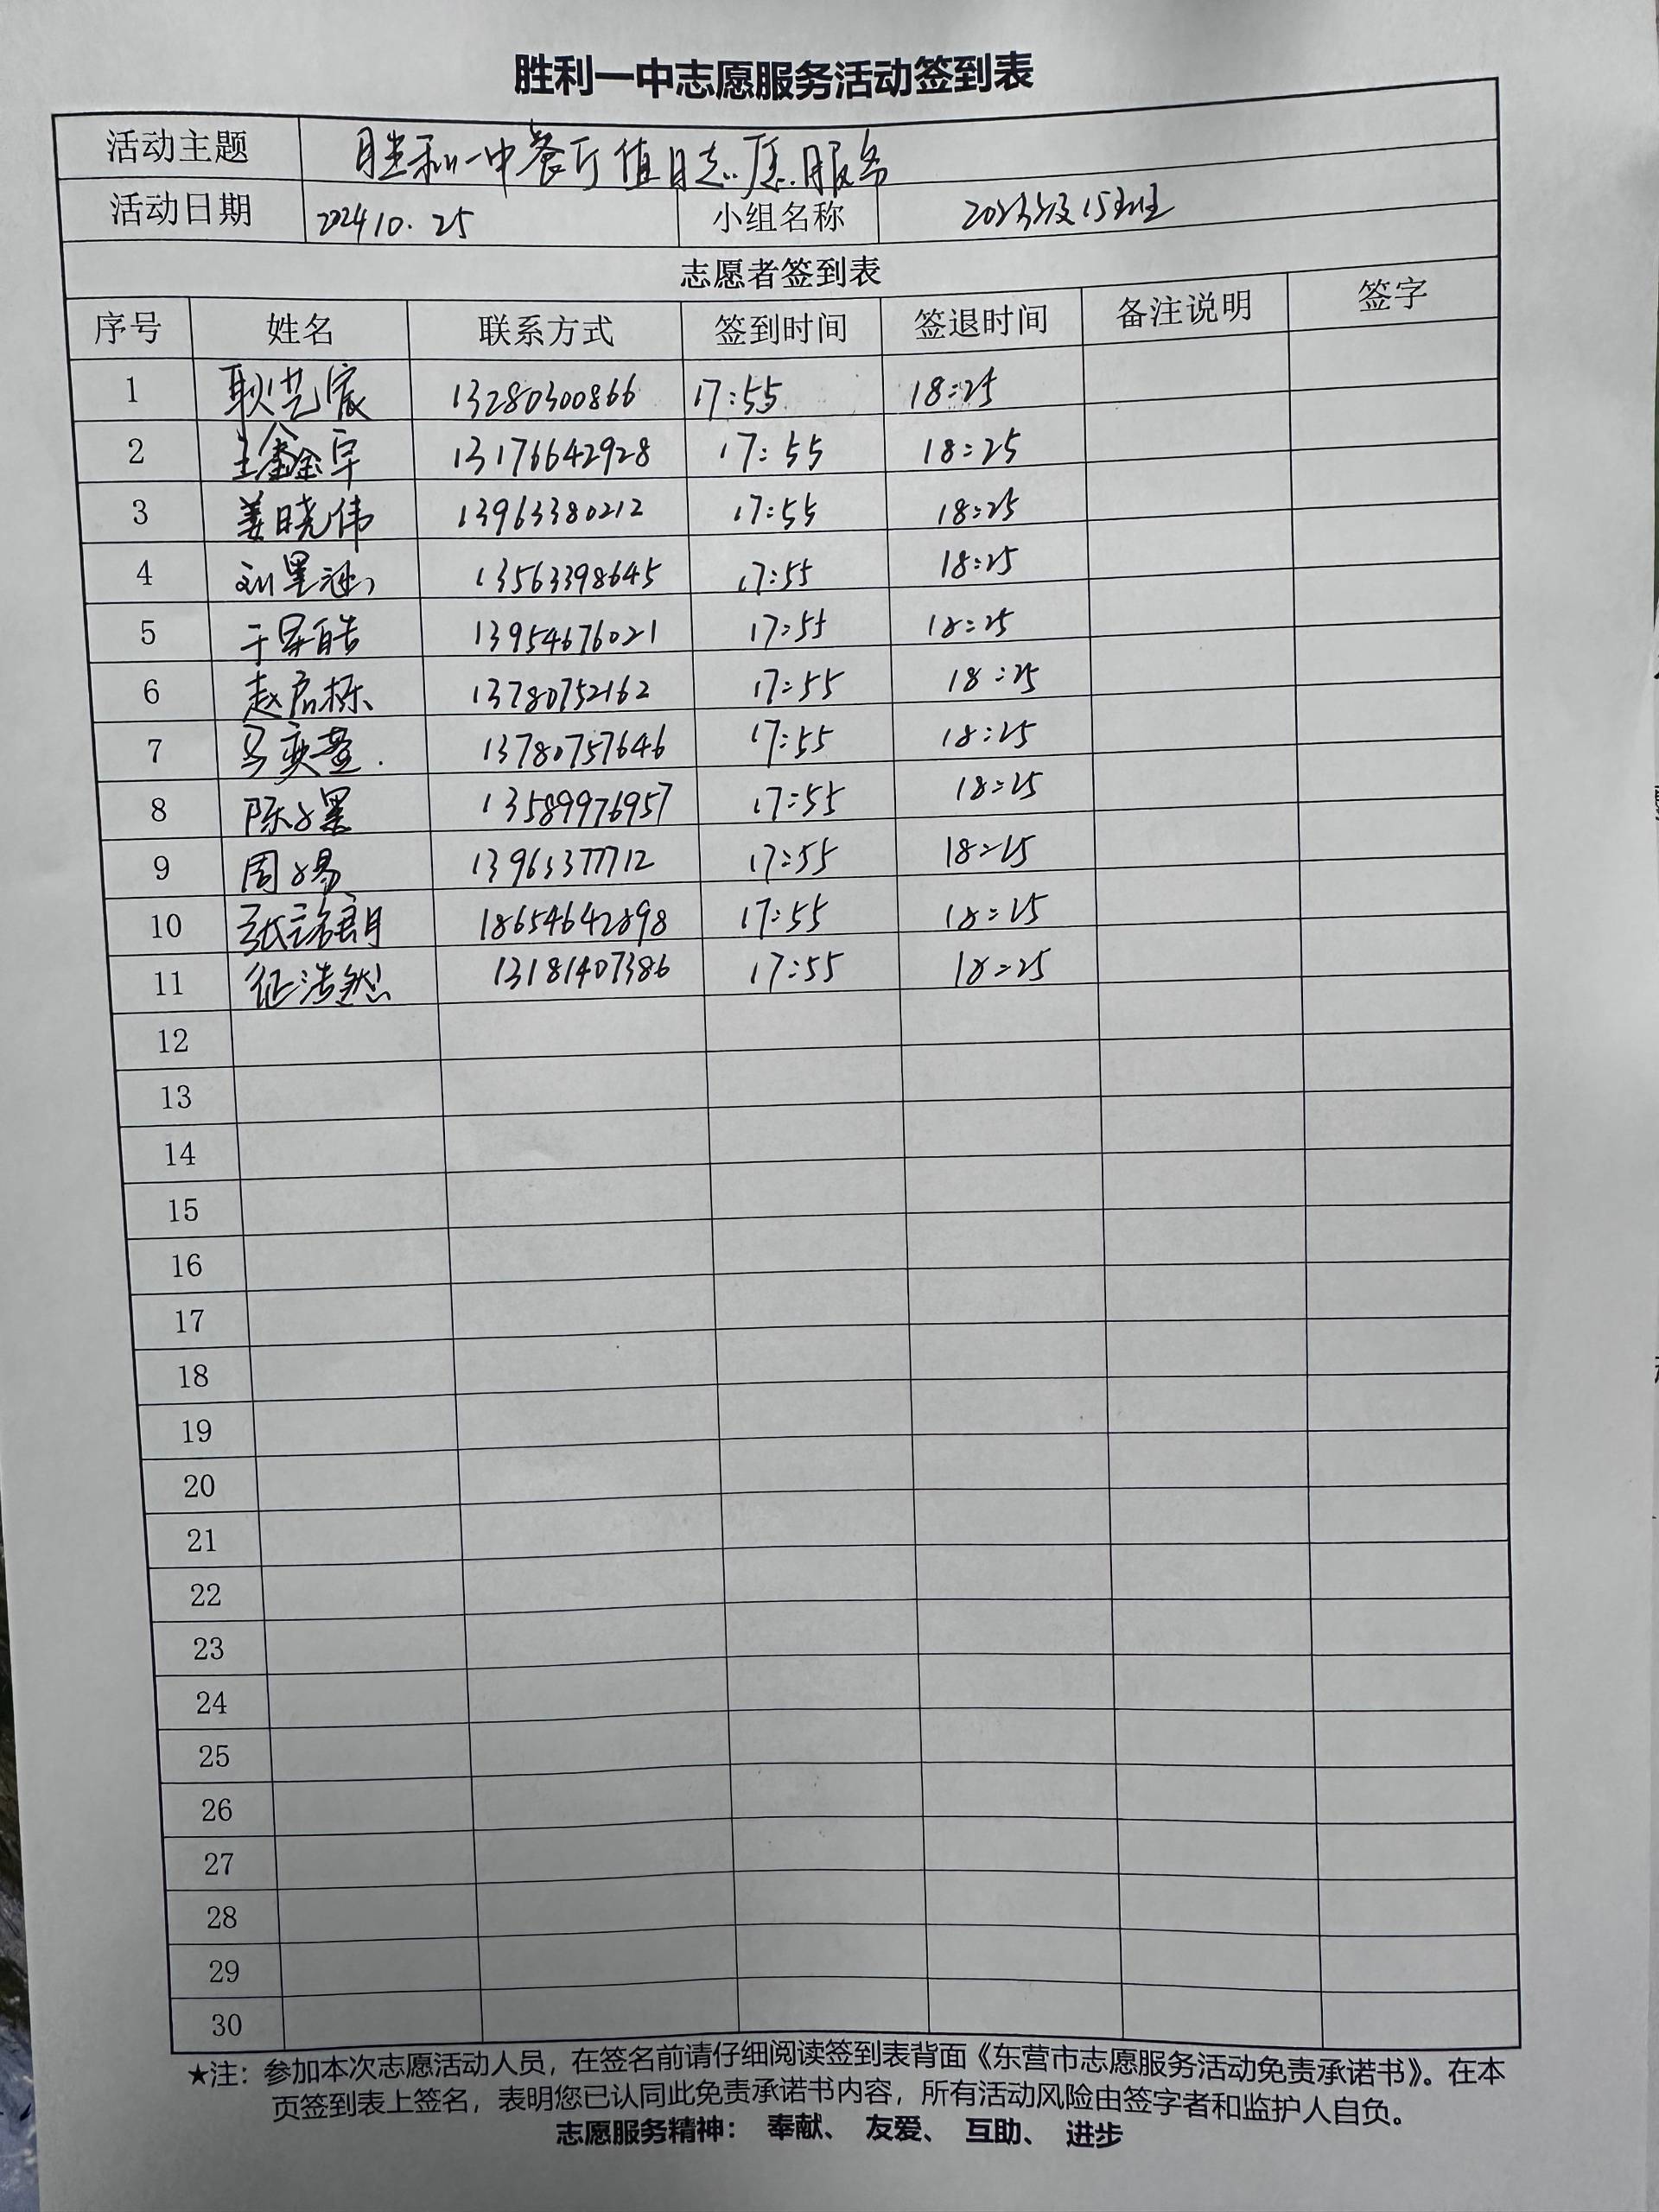 胜利一中志愿服务活动签到表
活动主题 胜利一中餐厅值日志愿服务
活动日期 2024 10. 25 小组名称 2023级15班
志愿者签到表
序号 姓名 联系方式 签到时间 签退时间 备注说明 签字
1 耿艺宸 13280300866 17:55 18:25
2 王鑫卓 13176642928 17:55 18:25
3 姜晓伟 13963380212 17:55 18:25
4 刘墨涵 13563398645 17:55 18:25
5 于昊皓 13954676021 17:55 18:25
6 赵启栋 13780752162 17:55 18:25
7 马奕萱 13780757646 17:55 18:25
8 陈子墨 13589976957 17:55 18:25
9 周子易 13963377712 17:55 18:25
10 张 18654642898 17:55 18:25
11 征浩然 13181407386 17:55 18:25
12
13
14
15
16
17
18
19
20
21
22
23
24
25
26
27
28
29
30
★注：参加本次志愿活动人员，在签名前请仔细阅读签到表背面《东营市志愿服务活动免责承诺书》。在本
页签到表上签名，表明您已认同此免责承诺书内容，所有活动风险由签字者和监护人自负。
志愿服务精神： 奉献、 友爱、 互助、 进步